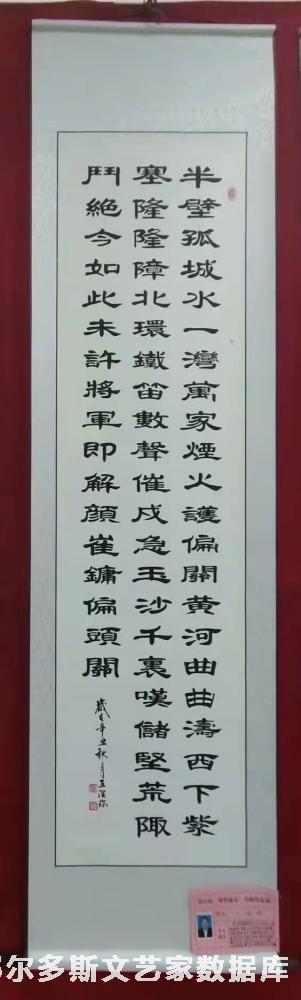 半壁孤城水一灣萬家煙火護偏關黄河曲曲濤西下紫
塞隆隆障北環鐵笛數聲催戍急玉沙千裏嘆儲堅荒陬
鬥絶今如此未許將軍即解顔崔鏞偏頭關
歲在辛丑秋月王
尔多斯文艺家数据库